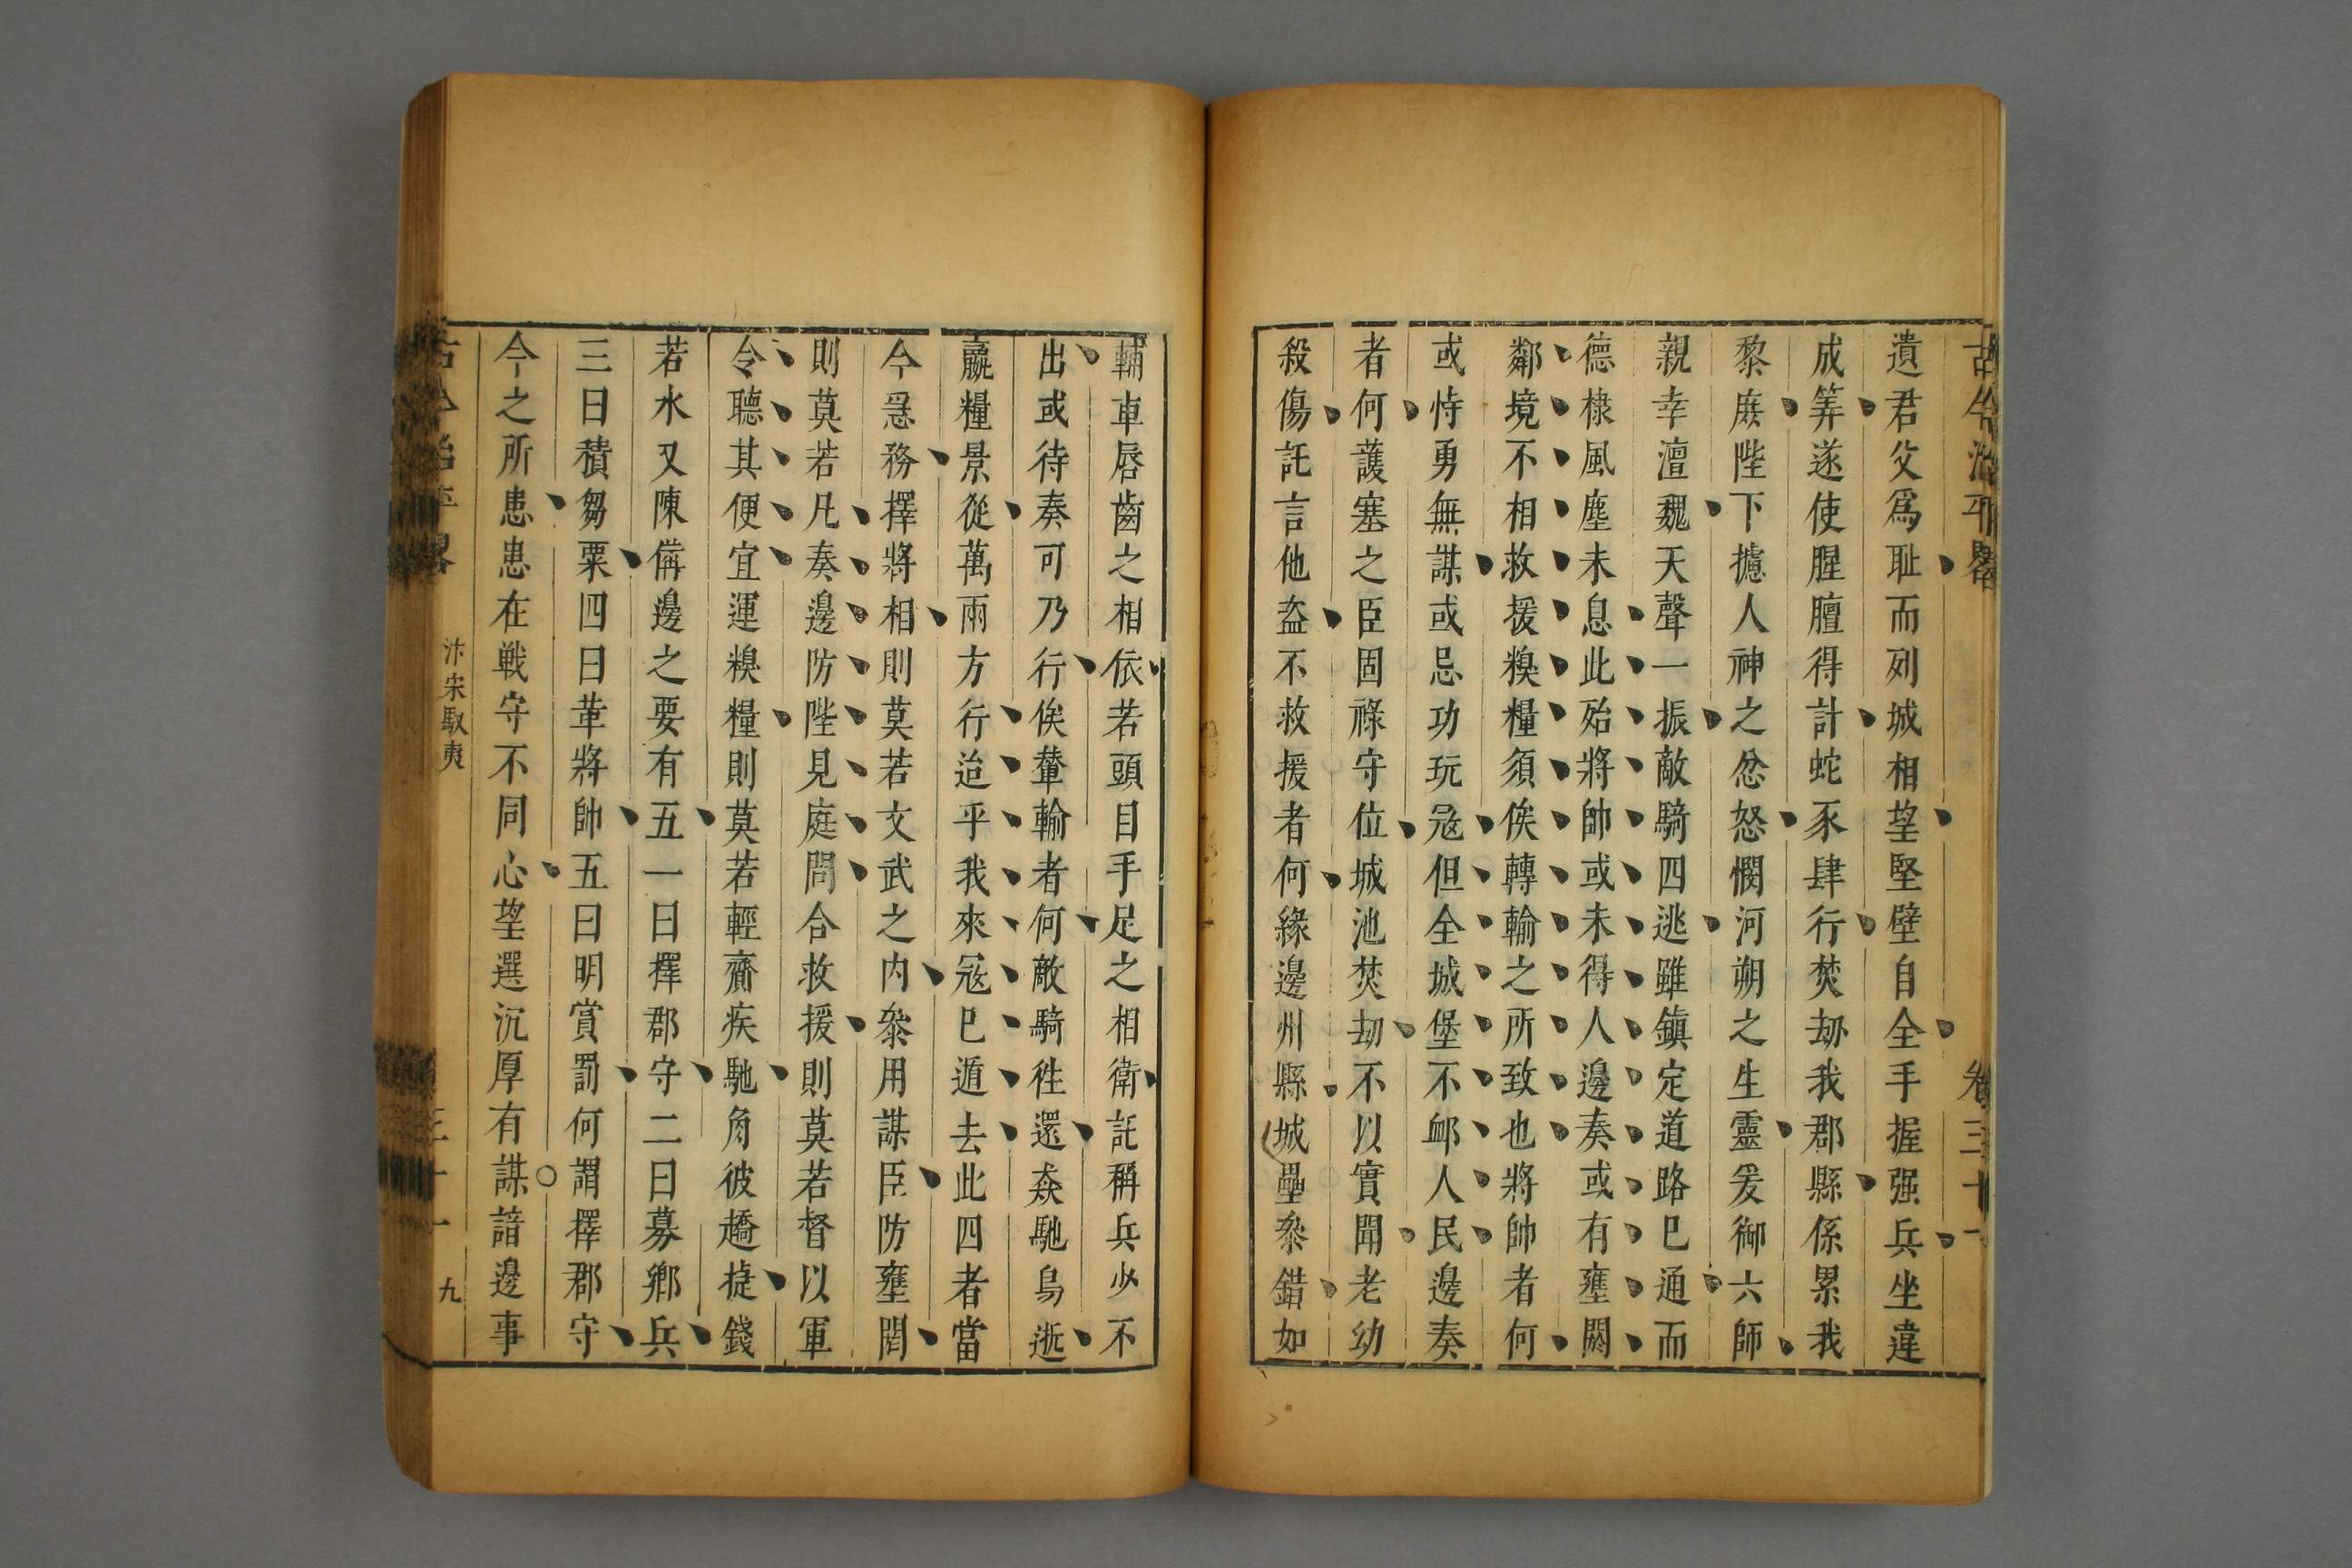 古今治平畧 卷三十一
遺君父爲耻而列城相望堅壁自全手握强兵坐違
成筭遂使腥膻得計蛇豕肆行焚劫我郡縣係累我
黎庶陛下攄人神之忿怒憫河朔之生靈爰御六師
親幸澶魏天聲一振敵騎四逃雖鎮定道路巳通而
德棣風塵未息此殆將帥或未得人邊奏或有壅閼
鄰境不相救援糗糧須俟轉輸之所致也將帥者何
或恃勇無謀或忌功玩冦但全城堡不卹人民邊奏
者何護塞之臣固祿守位城池焚劫不以實聞老幼
殺傷託言他盗不救援者何緣邊州縣城壘叅錯如
輔車唇齒之相依若頭目手足之相衛託稱兵少不
出或待奏可乃行俟輦輸者何敵騎徃還猋馳鳥逝
贏糧景從萬兩方行迨乎我來冦巳遁去此四者當
今急務擇將相則莫若文武之内叅用謀臣防壅閼
則莫若凡奏邊防陛見庭問合救援則莫若督以軍
令聽其便宜運糗糧則莫若輕齎疾馳角彼趫㨗錢
若水又陳備邊之要有五一曰擇郡守二曰募鄉兵
三曰積芻粟四曰革將帥五曰明賞罰何謂擇郡守
今之所患患在戦守不同心望選沉厚有謀諳邊事
古今治平畧 汴宋馭夷 三十一 九